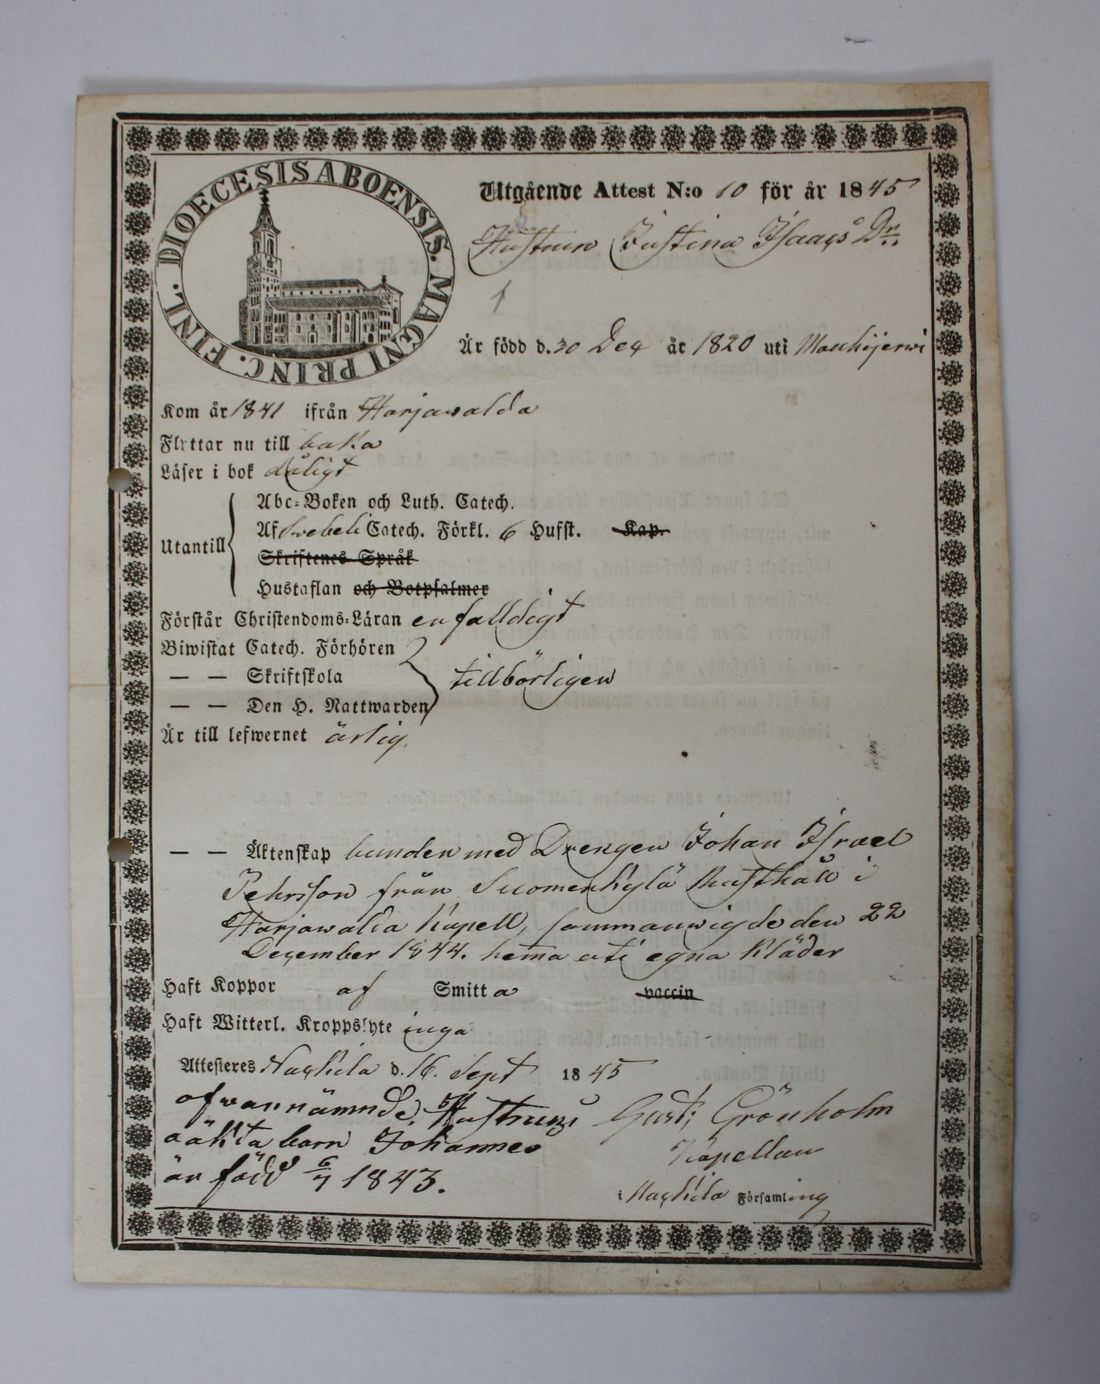 DIOECESIS ABOENSIS. MAGNI PRINC. FINL.
Utgående Attest N:o 10 för år 1845
Hustrun Justina Isaacs Dr.
Är född d. 30 Dec år 1820 uti Mouhijerwi
Kom år 1841 ifrån Harjawalda
Flyttar nu till baka
Läser i bok dåligt
Utantill
Abc-Boken och Luth. Catech.
Af Svebeli Catech. Förkl. 6 Hufst. Kap.
Skriftenes Språk
Hustaflan och Botpsalmer
Förstår Christendoms-Läran enfalldigt
Biwistat Catech. Förhören
— — Skriftskola tillbörligen
— — Den H. Nattwarden
Är till lefwernet ärlig
— — Äktenskap bunden med Drengen Johan Israel
Pehrsson från Suomenkylä Rusthåll i
Harjawalda Kapell, sammanwigde den 22
December 1844. hema uti egna kläder
Haft Koppor af Smitta vaccin
Haft Witterl. Kroppslyte inga
Attesteres Nackila d. 16. Sept 1845
ofvannämnde Hustrus Gust: Grönholm
oäkta barn Johannes Kapellan
är född 6/7 1843.
i Nackila Församling